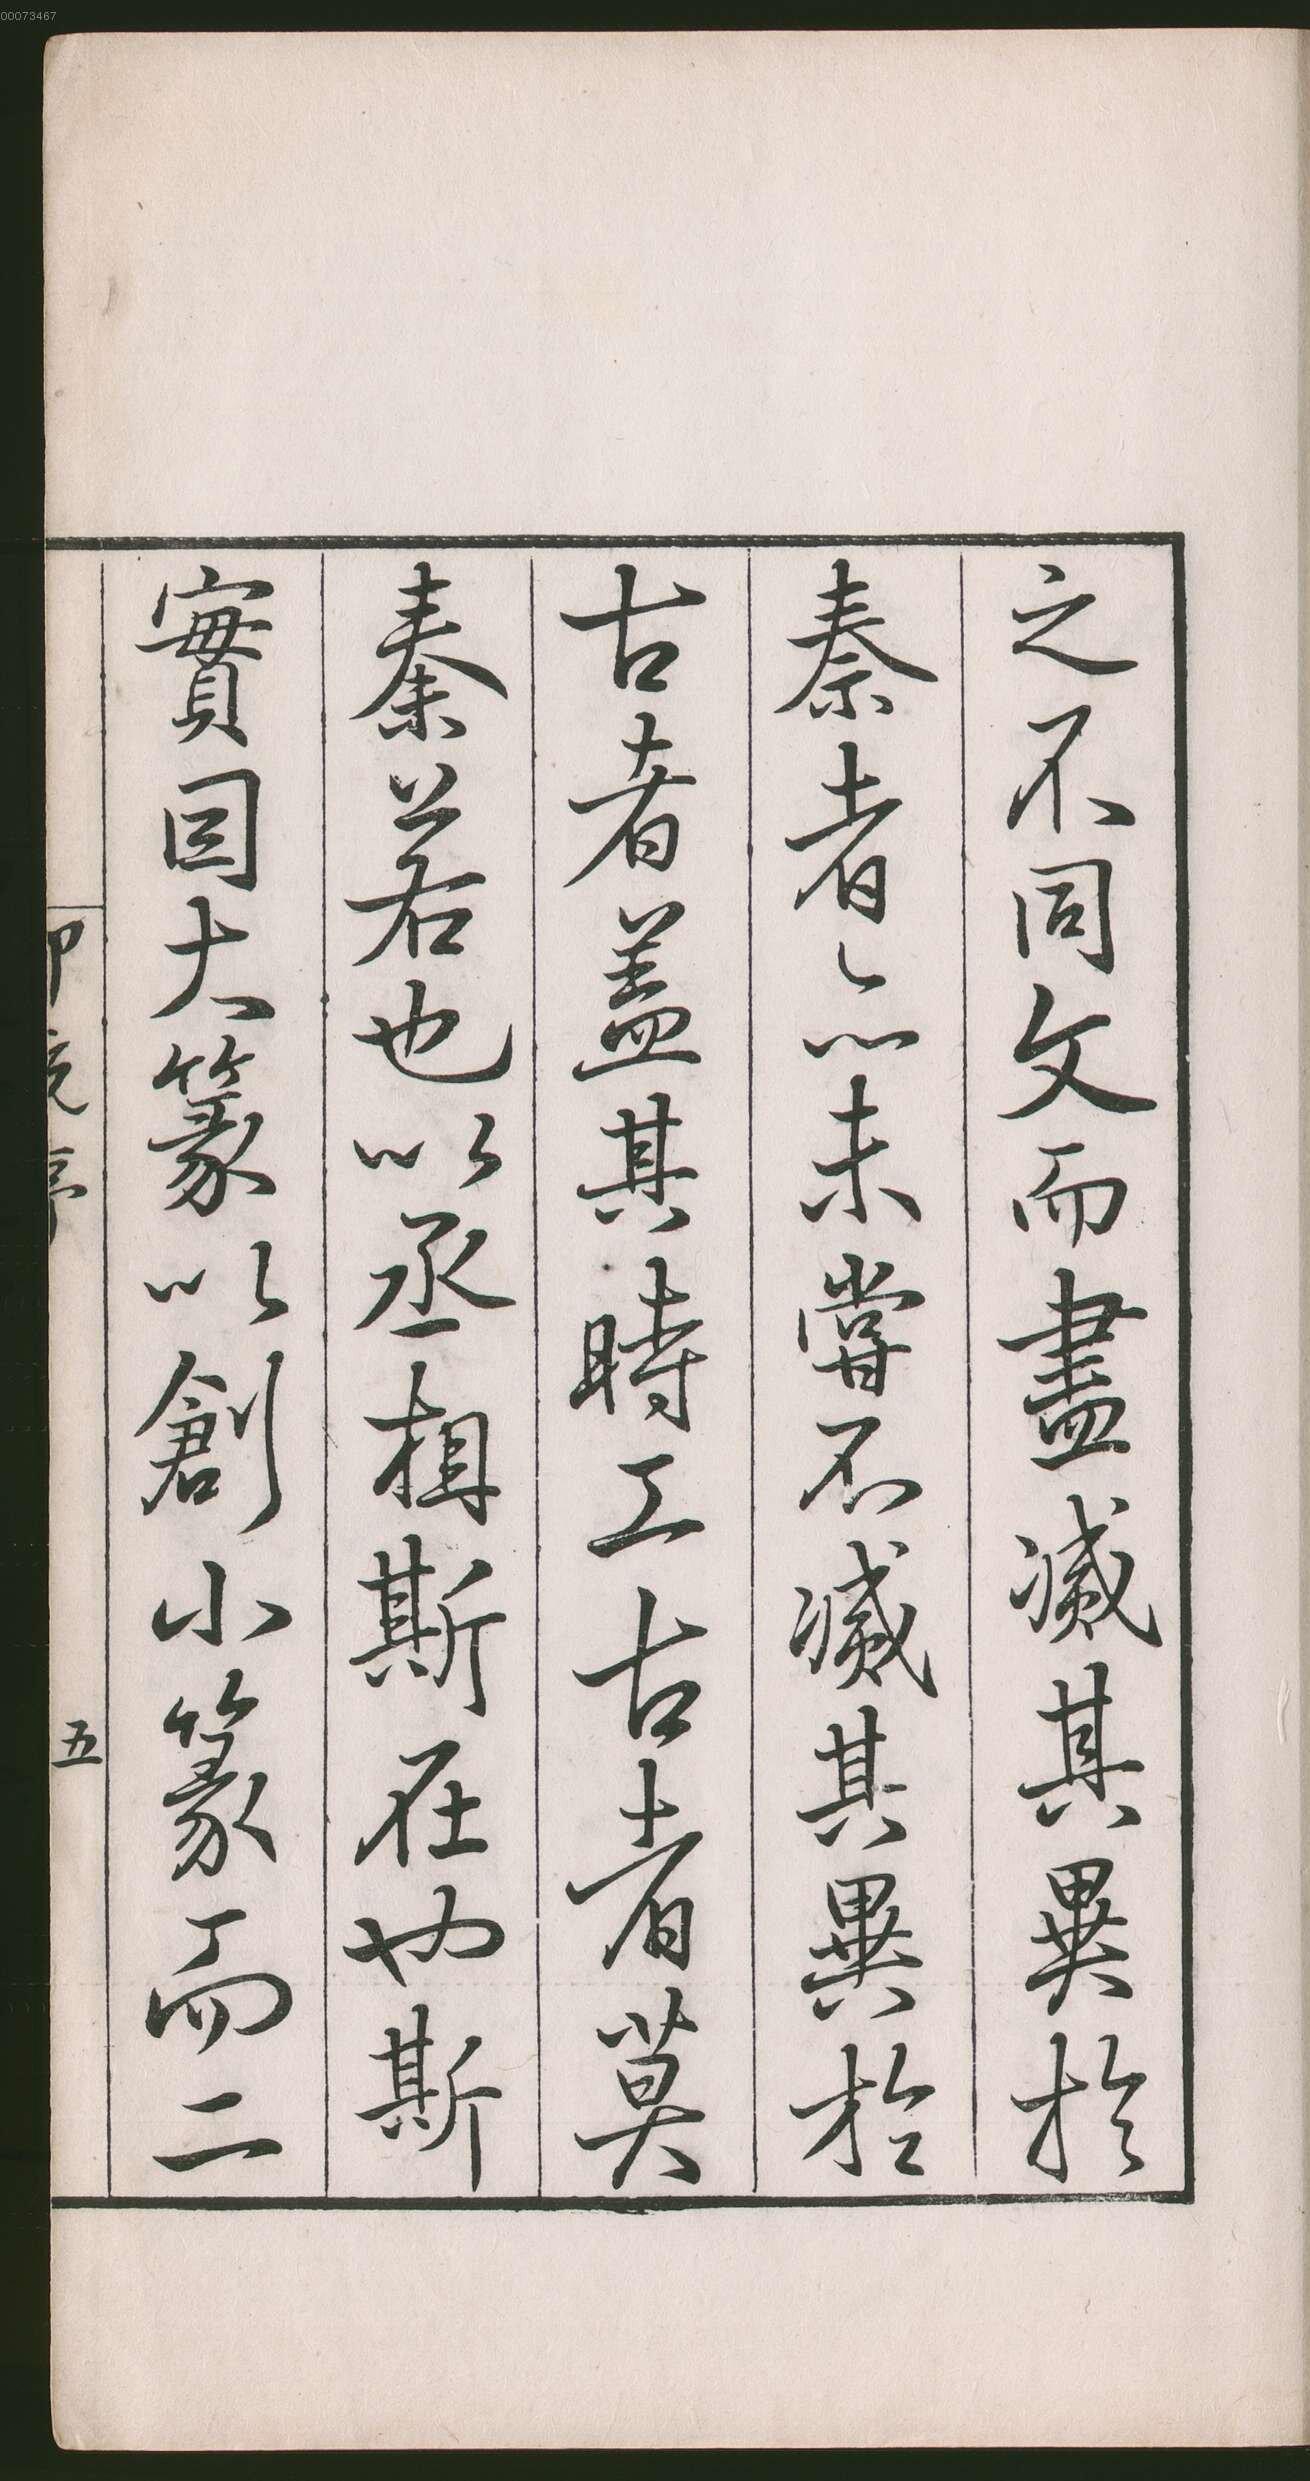 之不同文而盡滅其異於
秦者亦未嘗不滅其異於
古者盖其時工古者莫
秦若也以丞相斯在也斯
實因大篆以創小篆而二
五
00073467